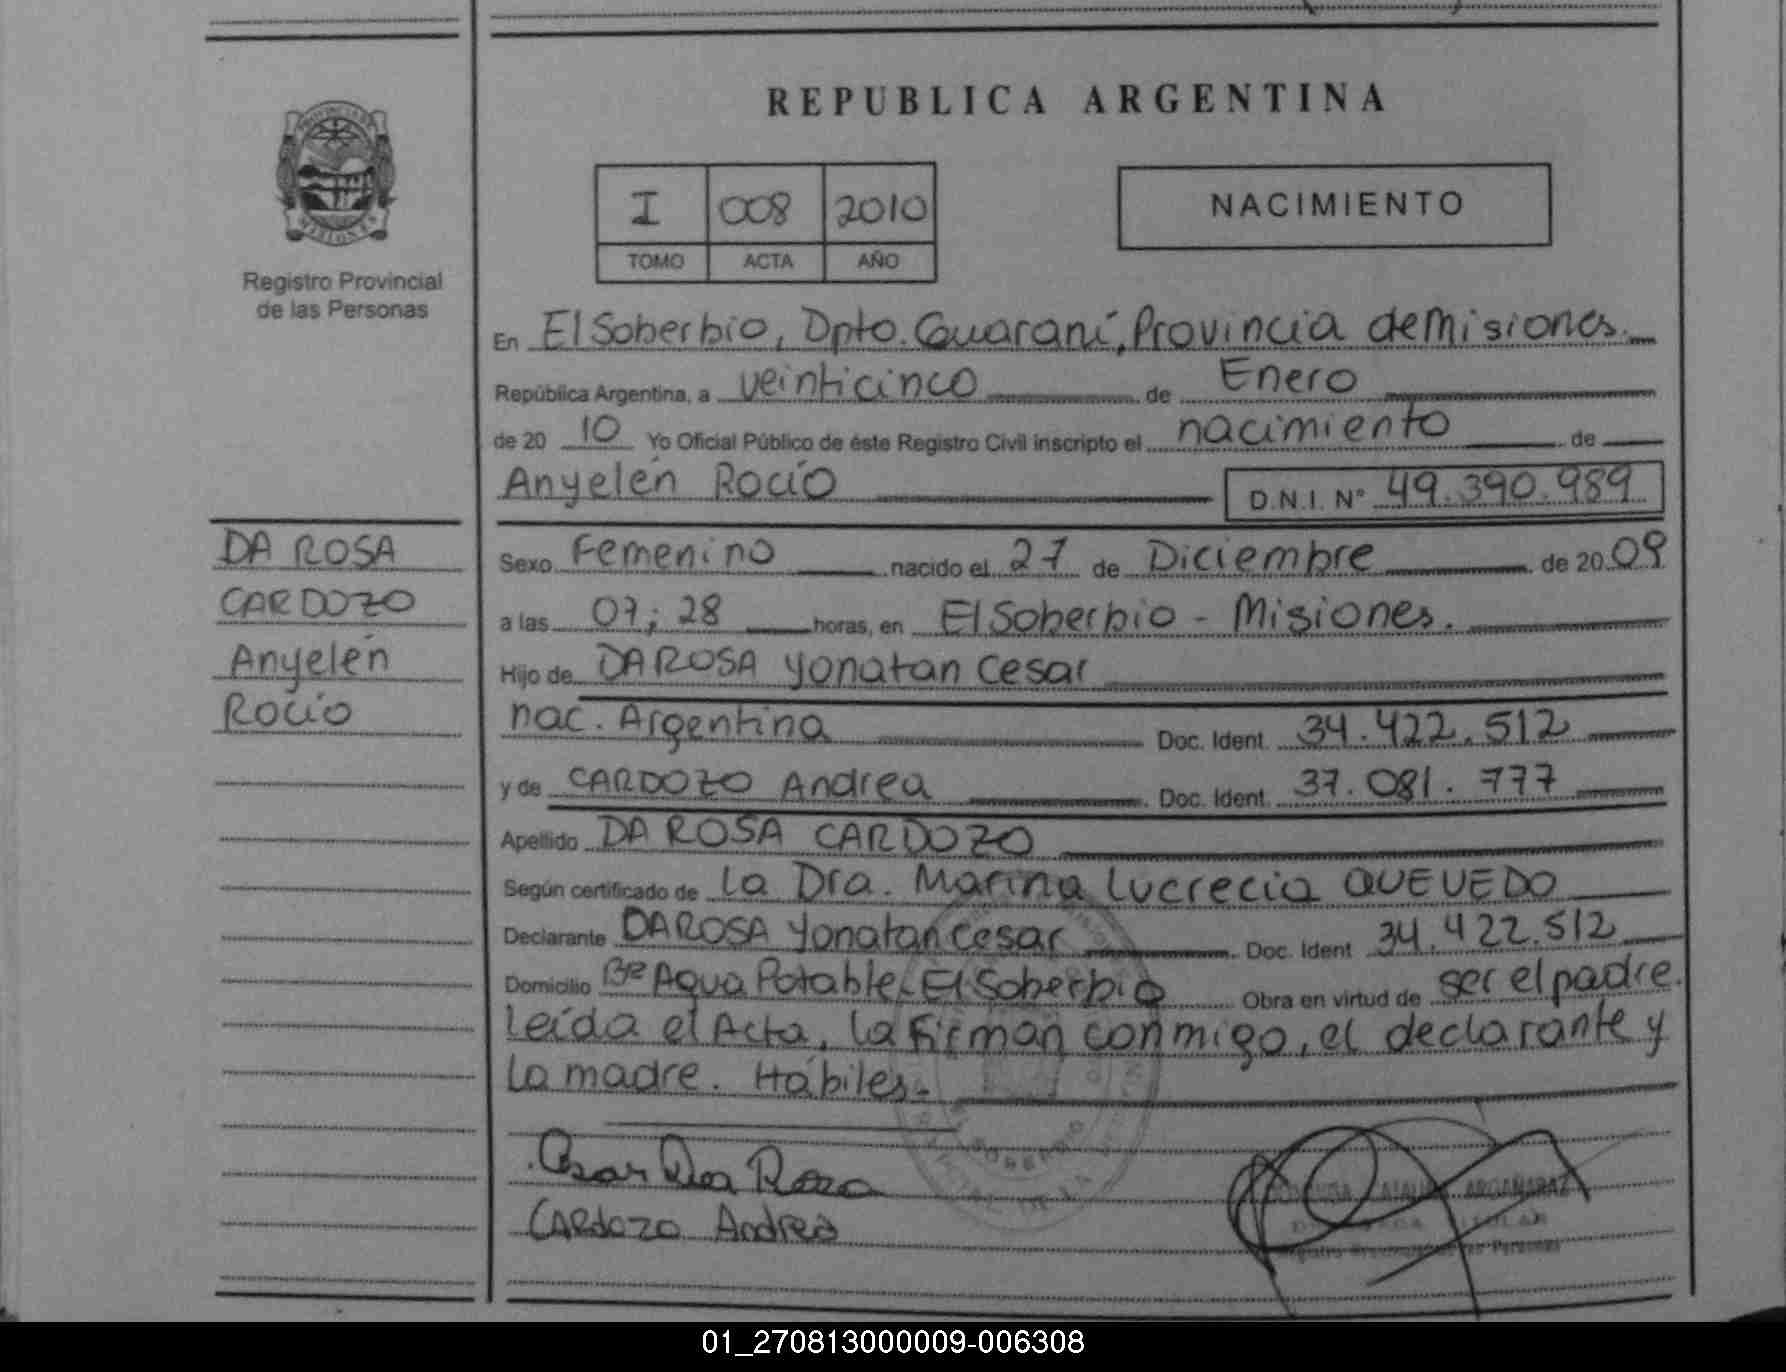 REPUBLICA ARGENTINA
I 008 2010
TOMO ACTA AÑO
NACIMIENTO
PROVINCIA DE
MISIONES
Registro Provincial
de las Personas
En El Soberbio, Dpto. Guaraní, Provincia de Misiones.
República Argentina, a veinticinco de Enero
de 20 10 Yo Oficial Público de éste Registro Civil inscripto el nacimiento de
Anyelén Rocío D.N.I. Nº 49.390.989
DA ROSA
CARDOZO
Anyelén
Rocío
Sexo Femenino nacido el 27 de Diciembre de 20 09
a las 07; 28 horas, en El Soberbio - Misiones.
Hijo de DA ROSA Yonatan Cesar
nac. Argentina Doc. Ident. 34.422.512
y de CARDOZO Andrea Doc. Ident. 37.081.777
Apellido DA ROSA CARDOZO
Según certificado de La Dra. Marina Lucrecia QUEVEDO
Declarante DA ROSA Yonatan Cesar Doc. Ident 34.422.512
Domicilio Bº Agua Potable. El Soberbio Obra en virtud de ser el padre.
Leída el Acta, la firman conmigo, el declarante y
la madre. Hábiles.-
Cesar Da Rosa
CARdozo Andrea
ARGAÑARAZ
Personas
01_270813000009-006308